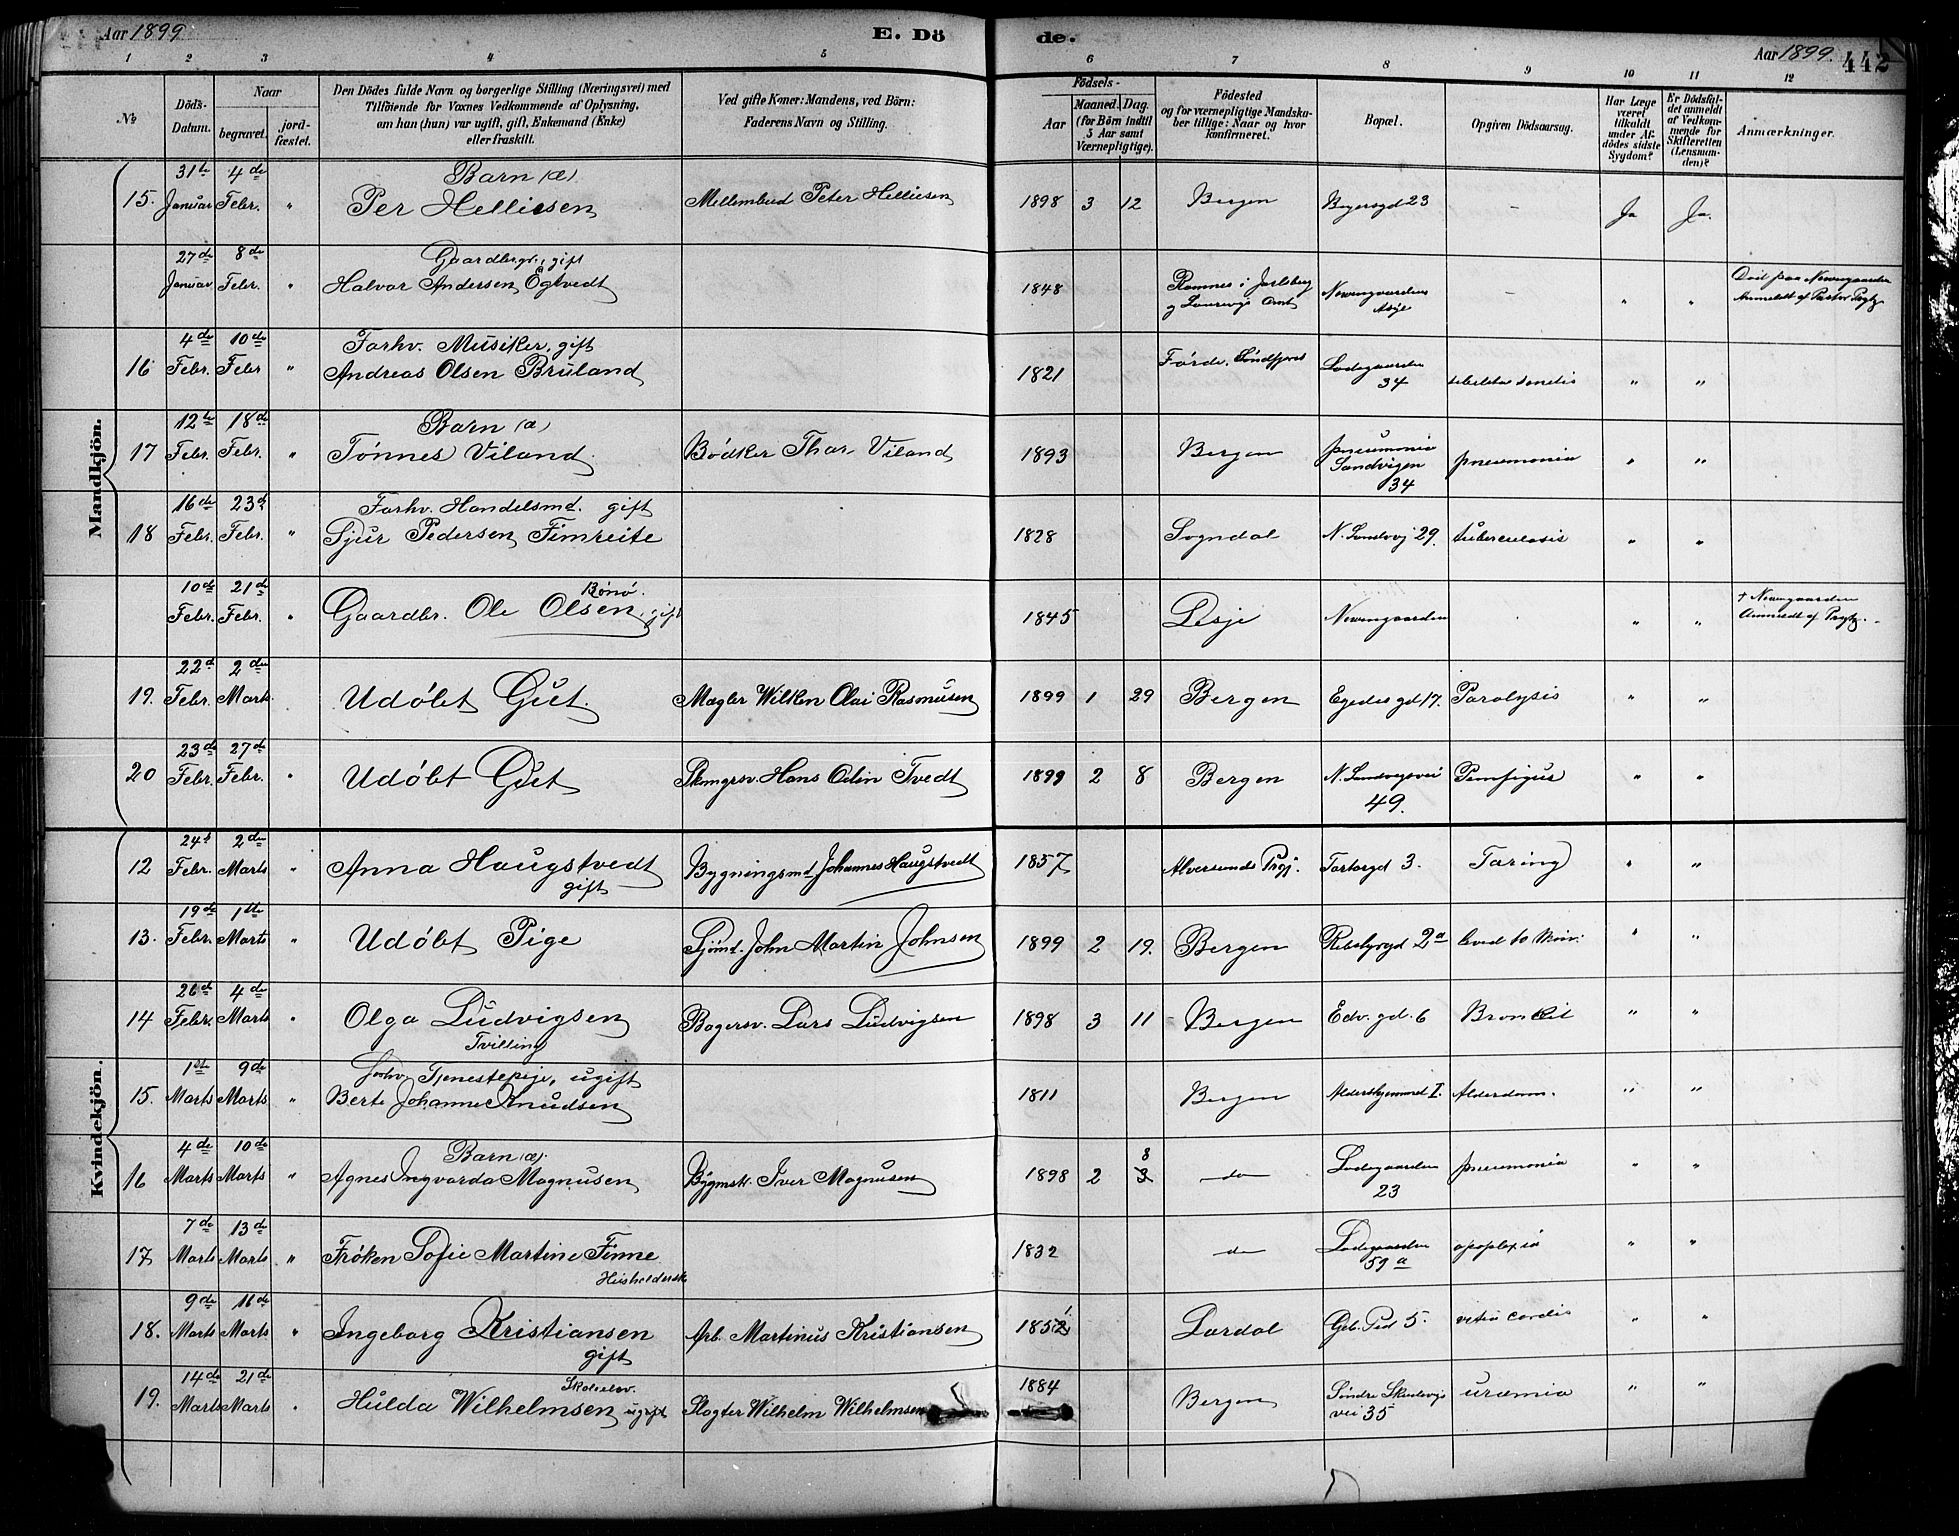 Aar 1899
E. Dö
de.
Aar 1899.
442
1 2 3 4 5 6 7 8 9 10 11 12
№
Döds-Datum.
Naar
begravet.
jord-fæstet.
Den Dödes fulde Navn og borgerlige Stilling (Næringsvei) med
Tilföiende for Voxnes Vedkommende af Oplysning,
om han (hun) var ugift, gift, Enkemand (Enke)
eller fraskilt.
Ved gifte Koner: Mandens, ved Börn:
Faderens Navn og Stilling.
Födsels-
Aar
Maaned. Dag.
(for Börn indtil
5 Aar samt
Værnepligtige).
Födested
og for værnepligtige Mandska-
ber tillige: Naar og hvor
konfirmeret.
Bopæl.
Opgiven Dödsaarsag.
Har Læge
været
tilkaldt
under Af-
dödes sidste
Sygdom?
Er Dödsfal-
det anmeldt
af Vedkom-
mende for
Skifteretten
(Lensman-
den)?
Anmærkninger.
Mandkjön.
31te 4de Barn (æ)
15. Januar Febr. " Per Helliesen Mellembud Peter Helliesen 1898 3 12 Bergen 23 - Ja Ja.
27de 8de Gaardbr. gift
Januar Febr. " Halvor Andersen Ögtvedt 1848 Ramnes i Jarlsberg Neevengaardens - " " Död paa Neevengaarden
og Laurvigs Amt Asyl Anmeldt af Pastor
4de 10de Forhv. Musiker, gift
16 Febr. Febr " Andreas Olsen Bruland 1821 Förde, Söndfjord Ladegaarden " "
34
12te 18de Barn (æ)
17 Febr. Febr. " Tönnes Viland Bödker Thor Viland 1893 Bergen pneumonia pneumonia " "
Sandvigen
34
16de 23d Forhv. Handelsmd. gift
18 Febr. Febr. " Sjur Pedersen Fimreite 1828 Sogndal N. Sandvvj 29. tuberculosis " "
10de 21de
Febr. Febr. " Gaardbr. Ole Olsen gift 1845 Lesje Neevengaarden " " † Neevengaarden
Anmeldt af
22d 2den
19. Febr. Marts Udöbt Gut. Mægler Wilken Olai Rasmusen 1899 1 29 Bergen Egedes gd 17. Paralysis " "
23de 27de
20 Febr. Febr. " Udöbt Gut Hans Odin Tvedt 1899 2 8 Bergen N. Sandvigsvei Pemfigus " "
49.
Kvindekjön.
24d 2den
12 Febr. Marts " Anna Haugstvedt Bygningsmd Johannes Haugstvedt 1857 Alversunds Prgj. 3. Tæring " "
gift
19de 1ste
13. Febr. Marts Udöbt Pige Sjömd. John Martin Johnsen 1899 2 19. Bergen 2a leved 10 Min. " "
26de 4de
14 Febr. Marts " Olga Ludvigsen Bagersv. Lars Ludvigsen 1898 3 11 Bergen Edv. gd. 6 Bronkit " "
Tvilling
1ste 9de Forhv. Tjenestepige, ugift
15. Marts Marts " Berte Johanne Knudsen 1811 Bergen I. Alderdom. " "
4de 10de Barn (æ). 8
16 Marts Marts " Agnes Ingvarda Magnusen Bygmstr. Iver Magnusen 1898 2 3 do Ladegaarden pneumonia " "
23
7de 13de
17 Marts Marts " Fröken Sofie Martine Finne 1832 do Ladegaarden apoplexia " "
59a
9de 16de
18. Marts Marts " Ingeborg Kristiansen Arb. Martinus Kristiansen 1852 Lærdal 5. vitiu cordis " "
gift
14de 21de Skoleelev.
19. Marts Marts " Hulda Wilhelmsen ugift Slagter Wilhelm Wilhelmsen 1884 Bergen Söndre Skudevigs uræmia " "
vei 35